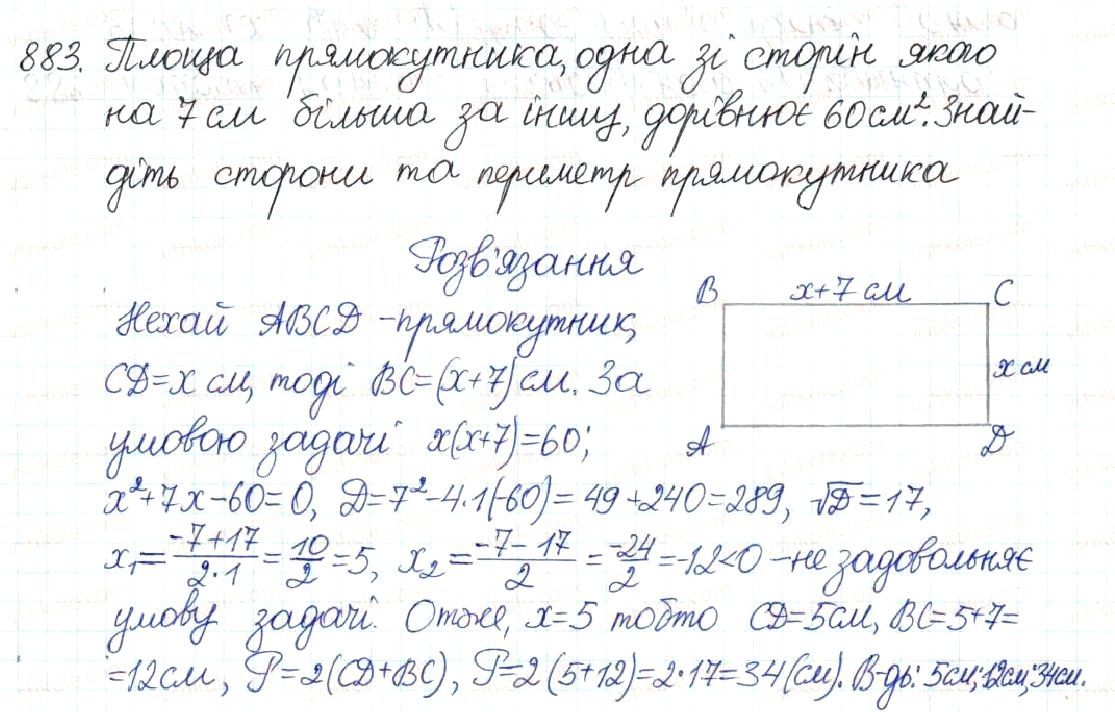 883. Площа прямокутника, одна зі сторін якого
на 7 см більша за іншу, дорівнює 60 см². Знай-
діть сторони та периметр прямокутника
Розв'язання
B x+7 см C
Нехай ABCD - прямокутник,
CD=x см, тоді BC=(x+7) см. За
x см
умовою задачі x(x+7)=60;
A D
x²+7x-60=0, D=7²-4·1(-60)=49+240=289, √D=17,
x₁=(-7+17)/(2·1)=10/2=5, x₂=(-7-17)/2=-24/2=-12<0 - не задовольняє
умову задачі. Отже, x=5 тобто CD=5см, BC=5+7=
=12см, P=2(CD+BC), P=2(5+12)=2·17=34(см). В-дь: 5см; 12см; 34см.